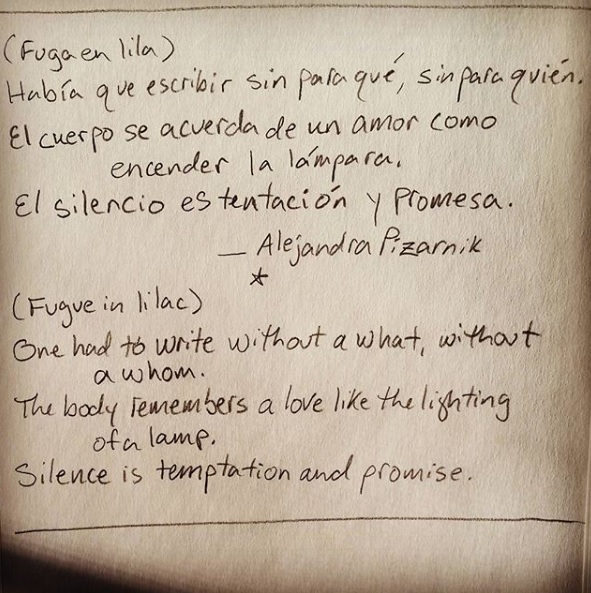 (Fuga en lila)
Había que escribir sin para qué, sin para quién.
El cuerpo se acuerda de un amor como
encender la lámpara.
El silencio es tentación y promesa.
— Alejandra Pizarnik
*
(Fugue in lilac)
One had to write without a what, without
a whom.
The body remembers a love like the lighting
of a lamp.
Silence is temptation and promise.